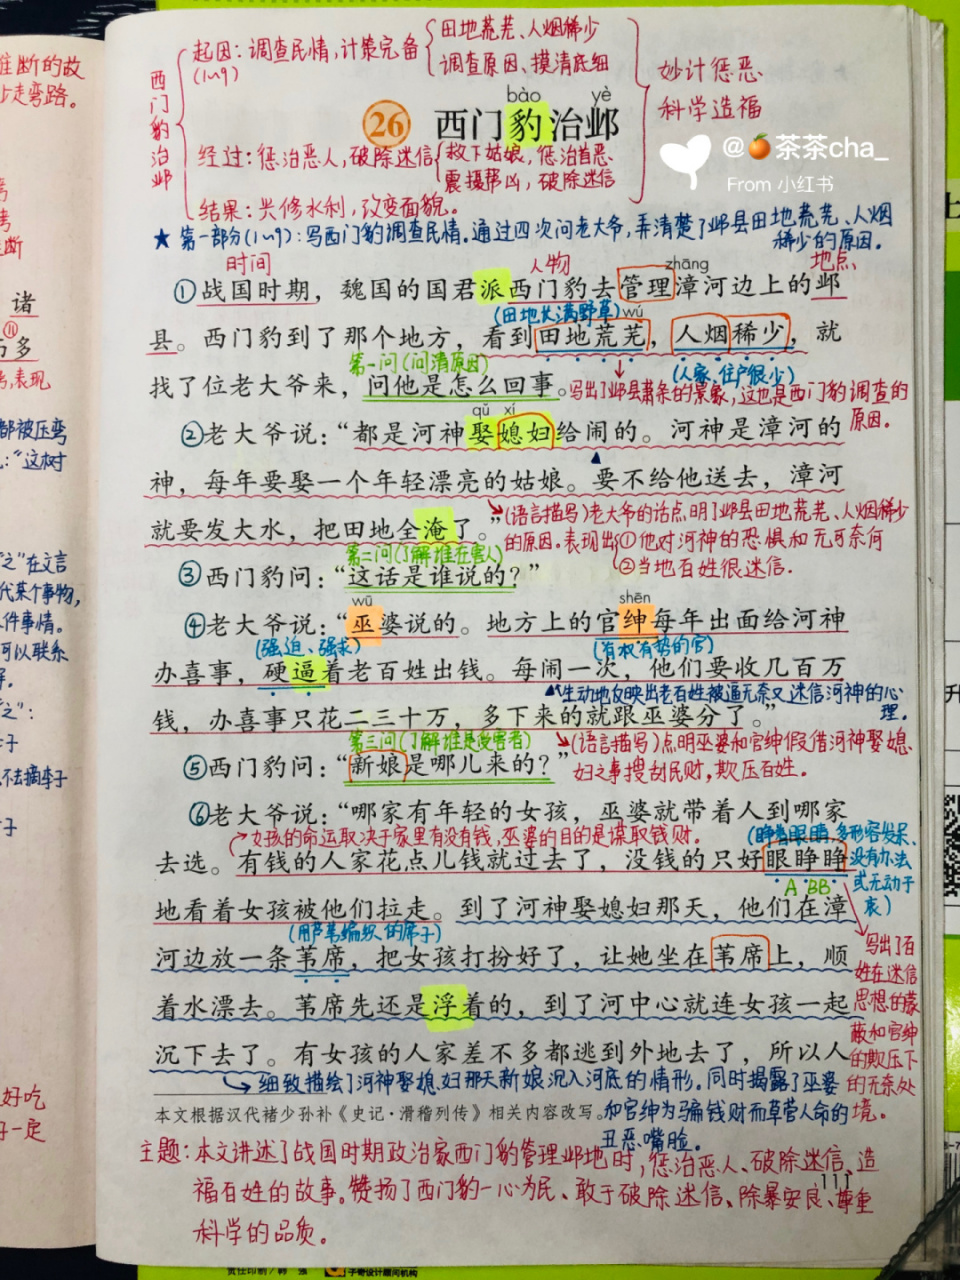 西门豹治邺
起因：调查民情，计策完备
(1~9)
田地荒芜、人烟稀少
调查原因、摸清底细
妙计惩恶
科学造福
bào yè
26 西门豹治邺
@🍊茶茶cha_
From 小红书
经过：惩治恶人，破除迷信
救下姑娘，惩治首恶
震摄帮凶，破除迷信
结果：兴修水利，改变面貌。
★ 第一部分(1~9)：写西门豹调查民情。通过四次问老大爷，弄清楚了邺县田地荒芜、人烟
稀少的原因。
时间 人物 zhāng 地点
①战国时期，魏国的国君派西门豹去管理漳河边上的邺
(田地长满野草) wú
县。西门豹到了那个地方，看到田地荒芜，人烟稀少，就
第一问(问清原因) (人家、住户很少)
找了位老大爷来，问他是怎么回事。
写出了邺县萧条的景象，这也是西门豹调查的
原因。
qǔ xí
②老大爷说：“都是河神娶媳妇给闹的。河神是漳河的
神，每年要娶一个年轻漂亮的姑娘。要不给他送去，漳河
就要发大水，把田地全淹了。”
(语言描写)老大爷的话点明了邺县田地荒芜、人烟稀少
的原因。表现出①他对河神的恐惧和无可奈何
②当地百姓很迷信.
第二问(了解谁在害人)
③西门豹问：“这话是谁说的？”
wū shēn
④老大爷说：“巫婆说的。地方上的官绅每年出面给河神
(强迫、强求) (有权有势的官)
办喜事，硬逼着老百姓出钱。每闹一次，他们要收几百万
生动地反映出老百姓被逼无奈又迷信河神的心
理。
钱，办喜事只花二三十万，多下来的就跟巫婆分了。”
第三问(了解谁是受害者)
(语言描写)点明巫婆和官绅假借河神娶媳
妇之事搜刮民财，欺压百姓。
⑤西门豹问：“新娘是哪儿来的？”
⑥老大爷说：“哪家有年轻的女孩，巫婆就带着人到哪家
女孩的命运取决于家里有没有钱，巫婆的目的是谋取钱财.
(睁着眼睛,多形容发呆、
没有办法
或无动于
衷)
去选。有钱的人家花点儿钱就过去了，没钱的只好眼睁睁
A BB
地看着女孩被他们拉走。到了河神娶媳妇那天，他们在漳
(用芦苇编织的席子)
河边放一条苇席，把女孩打扮好了，让她坐在苇席上，顺
着水漂去。苇席先还是浮着的，到了河中心就连女孩一起
沉下去了。有女孩的人家差不多都逃到外地去了，所以人
写出了百
姓在迷信
思想的蒙
蔽和官绅
的欺压下
的无奈处
境。
细致描绘了河神娶媳妇那天新娘沉入河底的情形。同时揭露了巫婆
和官绅为骗钱财而草菅人命的
丑恶嘴脸。
本文根据汉代褚少孙补《史记·滑稽列传》相关内容改写。
111
主题：本文讲述了战国时期政治家西门豹管理邺地时，惩治恶人、破除迷信、造
福百姓的故事。赞扬了西门豹一心为民、敢于破除迷信、除暴安良、尊重
科学的品质。
断的故
走弯路。
诸
多
表现
都被压弯
：“这树
“之”在文言
代某个事物，
件事情。
可以联系
“之”：
不去摘李子
好吃
一定
责任印制/韩 强
字奇设计顾问机构